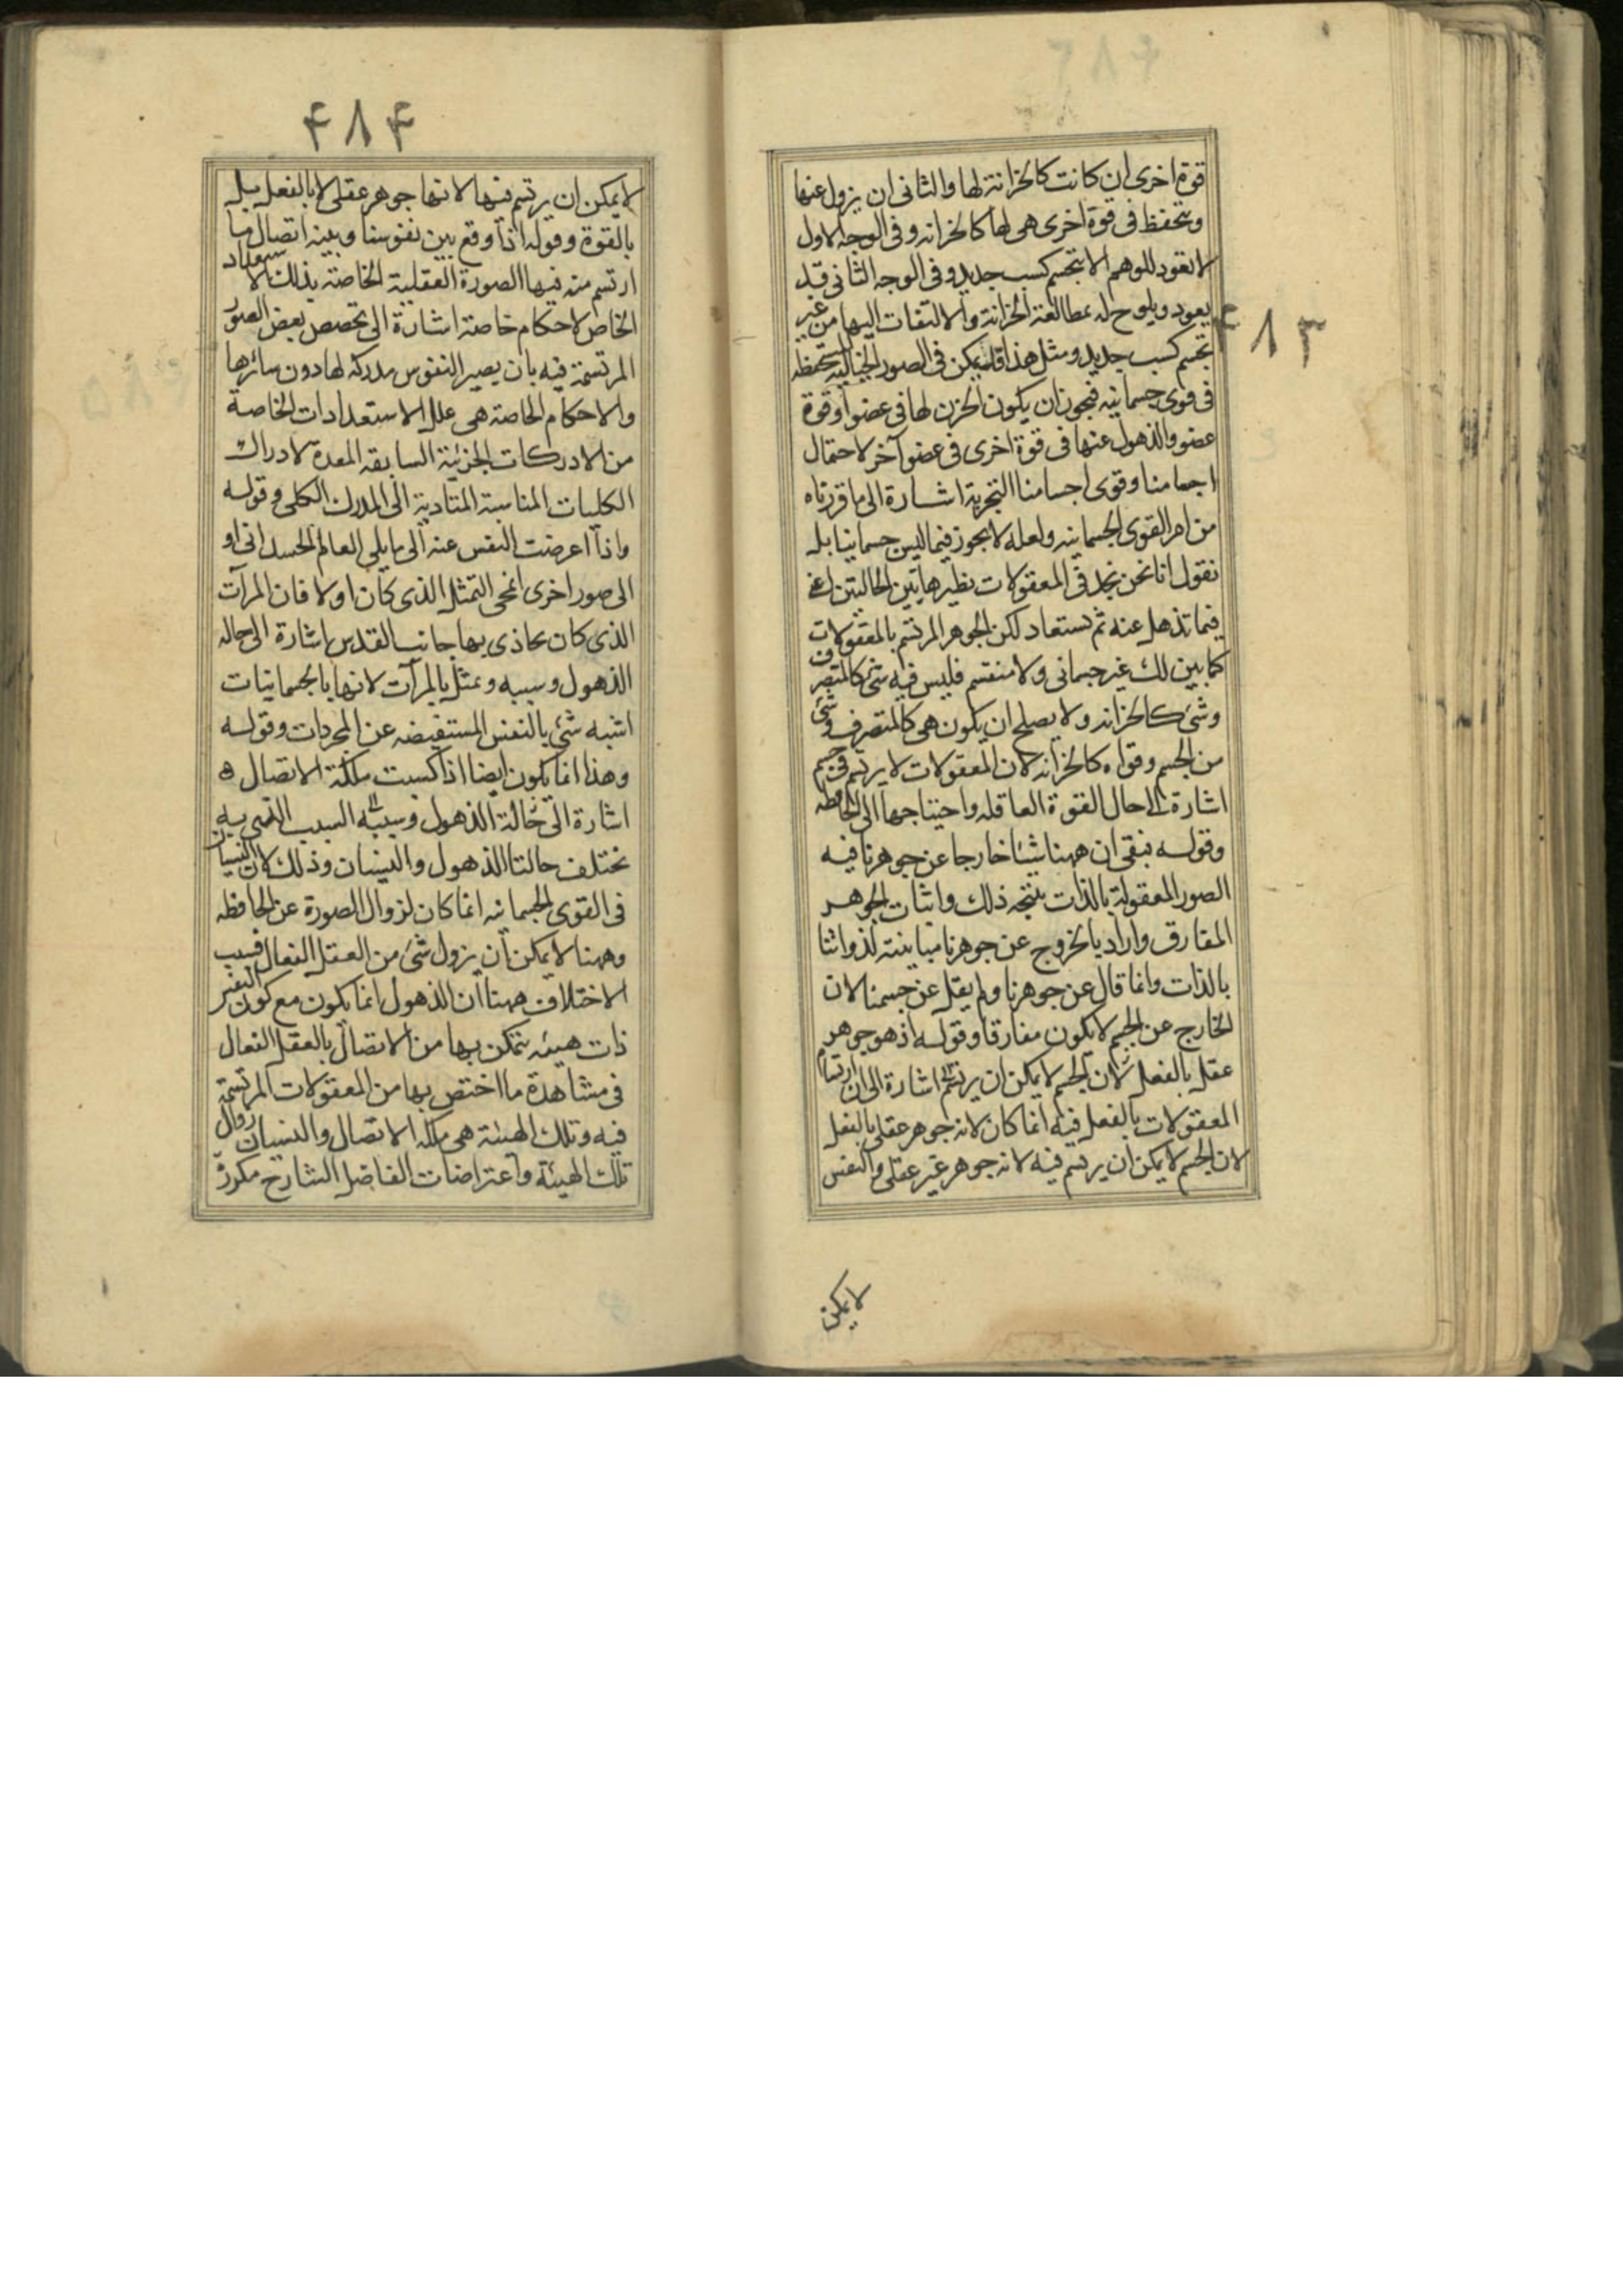 ٤٨٣
قوة اخرى ان كانت كالخزانة لها والثانى ان يزول عنها
ويتحفظ فى قوة اخرى هى لها كالخزانه وفى الوجه الاول
لا تعود للوهم الا بتجشم كسب جديد وفى الوجه الثانى قد
يعود ويلوح له بمطالعة الخزانة والالتفات اليها من غير
تجشم كسب جديد ومثل هذا قد يمكن فى الصور الخيالية المستحفظه
فى قوى جسمانيه فيجوز ان يكون الخزن لها فى عضو او قوة
عضو والذهول عنها فى قوة اخرى فى عضو آخر لاحتمال
اجسامنا وقوى اجسامنا التجزية اشارة الى ما قررناه
من امر القوى الجسمانيه ولعله لا يجوز فيما ليس جسمانيا بل
نقول انا نحن نجد فى المعقولات نظير هاتين الحالتين اعنى
فيما تذهل عنه ثم تستعاد لكن الجوهر المرتسم بالمعقولات
كما بين لك غير جسمانى ولا منقسم فليس فيه شئ كالمتصرف
وشئ كالخزانه ولا يصلح ان يكون هى كالمتصرف وشئ
من الجسم وقواه كالخزانه لان المعقولات لا يرتسم فى جسم
اشارة الى حال القوة العاقله واحتياجها الى الحافظه
وقوله فبقى ان ههنا شيئا خارجا عن جوهرنا فيه
الصور المعقولة بالذات نتيجه ذلك واثبات الجوهر
المفارق واراد بالخروج عن جوهرنا مباينته لذواتنا
بالذات وانما قال عن جوهرنا ولم يقل عن جسمنا لان
الخارج عن الجسم لا يكون مفارقا وقوله اذ هو جوهر
عقلى بالفعل لان الجسم لا يمكن ان يرتسم اشارة الى ان ارتسام
المعقولات بالفعل فيه انما كان لانه جوهر عقلى بالفعل
لان الجسم لا يمكن ان يرتسم فيه لانه جوهر غير عقلى والنفس
لا يمكن
٤٨٤
لا يمكن ان يرتسم فيها لانها جوهر عقلى لا بالفعل بل
بالقوة وقوله اذا وقع بين نفوسنا وبينه اتصال ما
ارتسم منه فيها الصورة العقلية الخاصة بذلك الاستعداد
الخاص لاحكام خاصة اشارة الى تخصص بعض الصور
المرتسمة فيه بان يصير النفوس مدركة لها دون سائرها
والاحكام الخاصة هى علل الاستعدادات الخاصة
من الادركات الجزئية السابقه المعدة لادراك
الكليات المناسبة المتادية الى المدرك الكلى وقوله
واذا اعرضت النفس عنه الى ما يلى العالم الجسدانى او
الى صور اخرى انمحى التمثل الذى كان اولا فان المرآت
الذى كان يحاذى بها جانب القدس اشارة الى حاله
الذهول وسببه وتمثل بالمرآت لانها بالجسمانيات
اشبه شئ بالنفس المستفيضه عن المجردات وقوله
وهذا انما يكون ايضا اذا كسبت ملكة الاتصال ه
اشارة الى حالة الذهول وسببه السبب الذى به
تختلف حالتا الذهول والنسيان وذلك لان النسيان
فى القوى الجسمانيه انما كان لزوال الصورة عن الحافظه
وههنا لا يمكن ان يزول شئ من العقل الفعال فسبب
الاختلاف ههنا ان الذهول انما يكون مع كون النفس
ذات هيئه تتمكن بها من الاتصال بالعقل الفعال
فى مشاهدة ما اختص بها من المعقولات المرتسمة
فيه وتلك الهيئة هى ملكه الاتصال والنسيان زوال
تلك الهيئة واعتراضات الفاضل الشارح مكررة